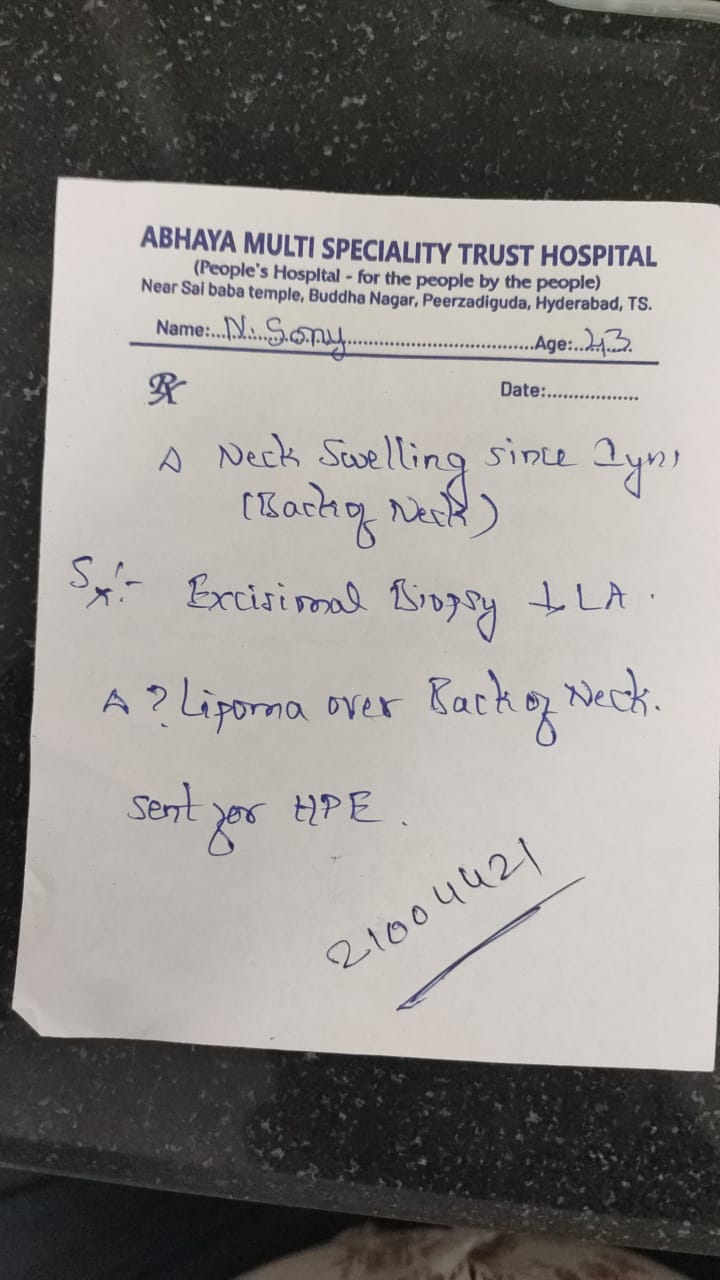 ABHAYA MULTI SPECIALITY TRUST HOSPITAL
(People's Hospital - for the people by the people)
Near Sai baba temple, Buddha Nagar, Peerzadiguda, Hyderabad, TS.
Name:...N. Sony...Age:..43
Rx
Date:..................
Δ Neck Swelling since
(Back of Neck)
Sx:- Excisional Biopsy ↓ LA.
Δ ? Lipoma over Back of Neck.
sent for HPE.
21004421